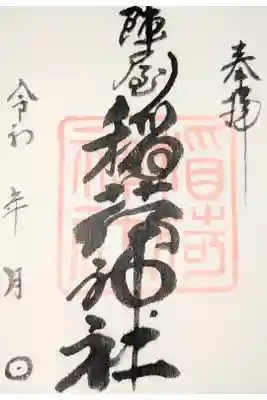 奉拝
陣屋稲荷神社
令和 年 月 日